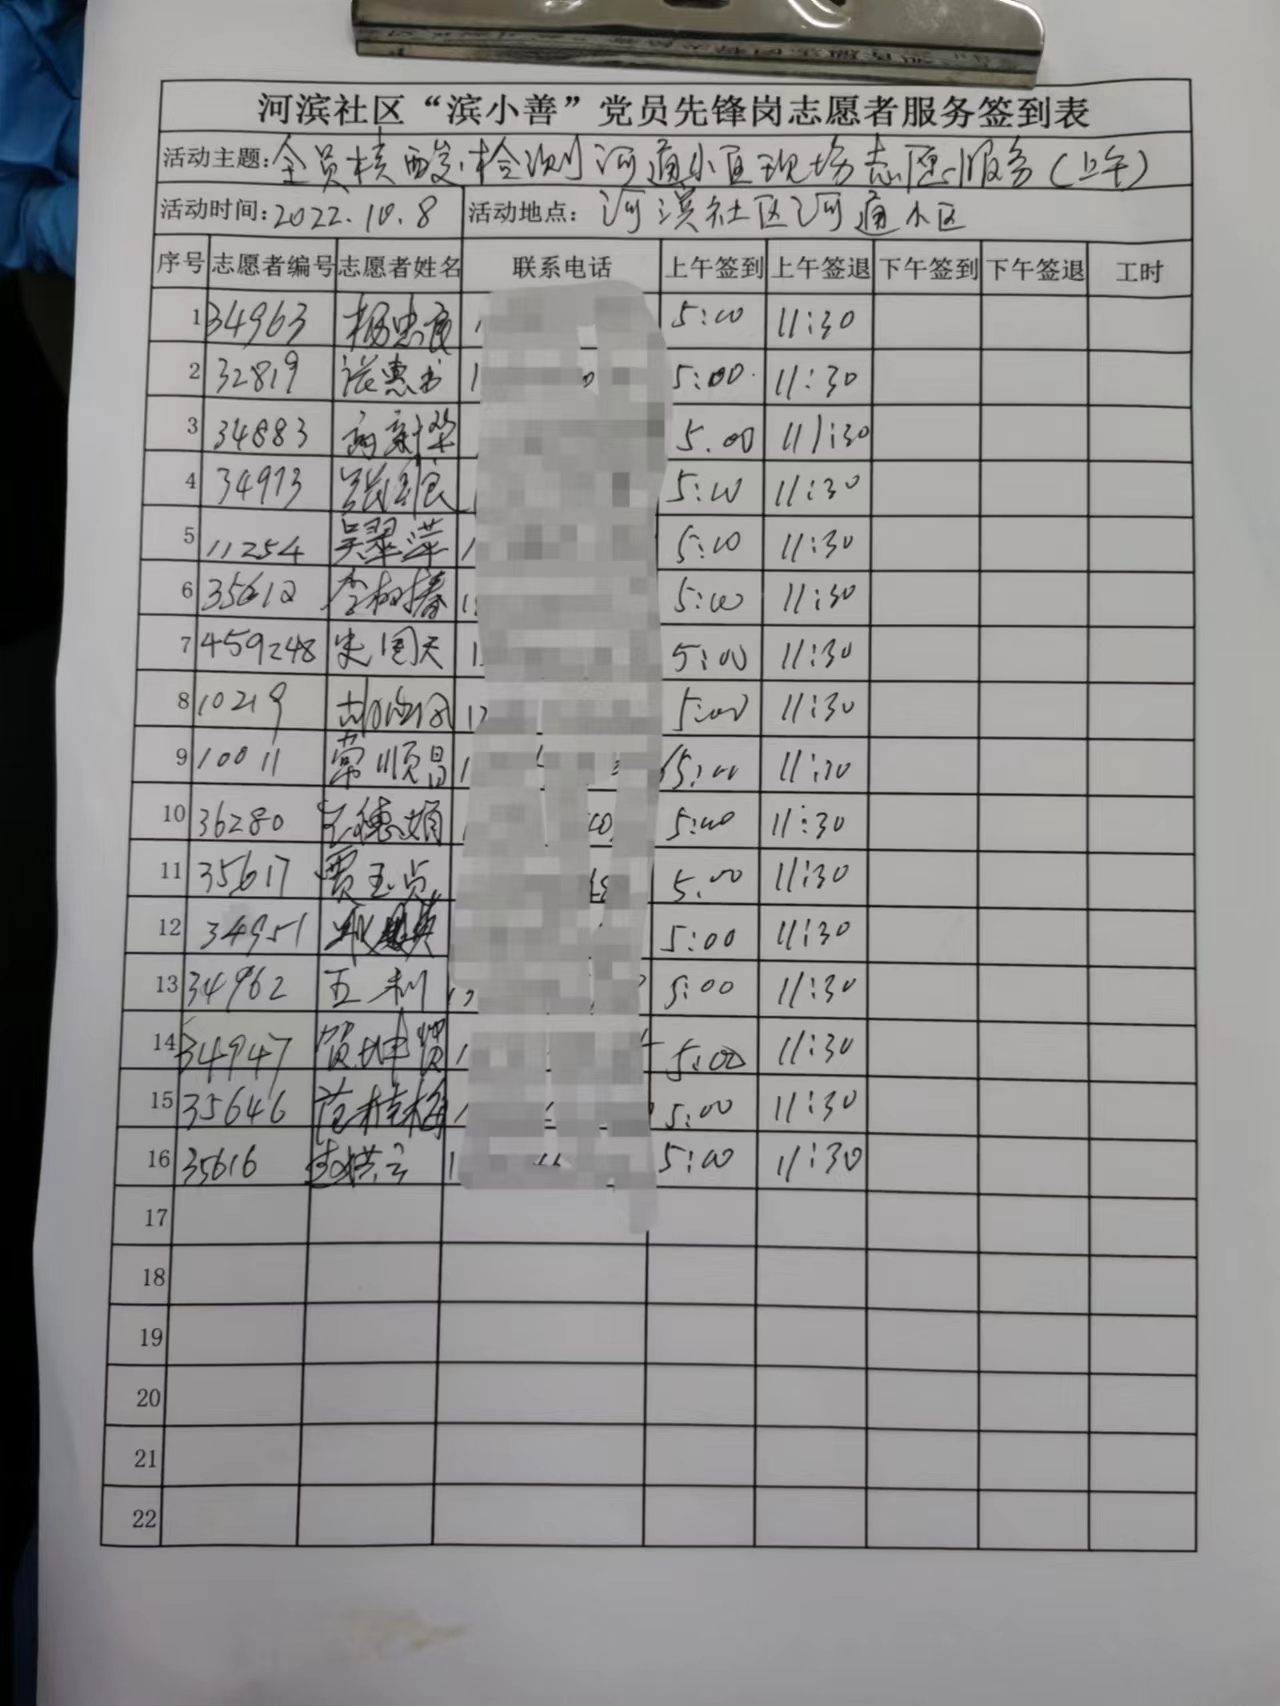 河滨社区“滨小善”党员先锋岗志愿者服务签到表
活动主题：全员核酸检测河通小区现场志愿服务（上午）
活动时间：2022.10.8 活动地点：河滨社区河通小区
序号 志愿者编号 志愿者姓名 联系电话 上午签到 上午签退 下午签到 下午签退 工时
1 34963 杨忠良 5:00 11:30
2 32819 5:00 11:30
3 34883 5.00 11:30
4 34973 5:00 11:30
5 11254 吴翠萍 5:00 11:30
6 35612 李树春 5:00 11:30
7 459248 史国天 5:00 11:30
8 10219 5:00 11:30
9 10011 常顺昌 5:00 11:30
10 36280 5:00 11:30
11 35617 贾玉贞 5:00 11:30
12 34951 5:00 11:30
13 34962 王利 5:00 11:30
14 34947 贺坤贤 5:00 11:30
15 35646 范桂梅 5:00 11:30
16 35616 5:00 11:30
17
18
19
20
21
22